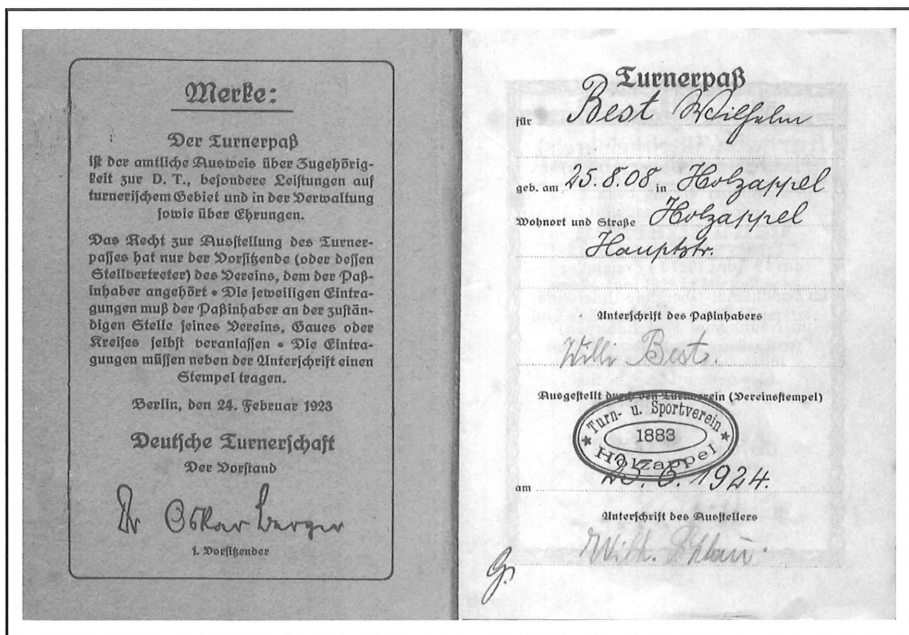 Merke:
Der Turnerpaß
ist der amtliche Ausweis über Zugehörig-
keit zur D. T., besondere Leistungen auf
turnerischem Gebiet und in der Verwaltung
sowie über Ehrungen.
Das Recht zur Ausstellung des Turner-
passes hat nur der Vorsitzende (oder dessen
Stellvertreter) des Vereins, dem der Paß-
inhaber angehört • Die jeweiligen Eintra-
gungen muß der Paßinhaber an der zustän-
digen Stelle seines Vereins, Gaues oder
Kreises selbst veranlassen • Die Eintra-
gungen müssen neben der Unterschrift einen
Stempel tragen.
Berlin, den 24. Februar 1923
Deutsche Turnerschaft
Der Vorstand
Dr Oskar Berger
1. Vorsitzender
Turnerpaß
für Best Wilhelm
geb. am 25.8.08 in Holzappel
Wohnort und Straße Holzappel
Hauptstr.
Unterschrift des Paßinhabers
Willi Best.
Ausgestellt durch den Turnverein (Vereinsstempel)
Turn- u. Sportverein
1883
Holzappel
am 25.6.1924.
Unterschrift des Ausstellers
Wilh.